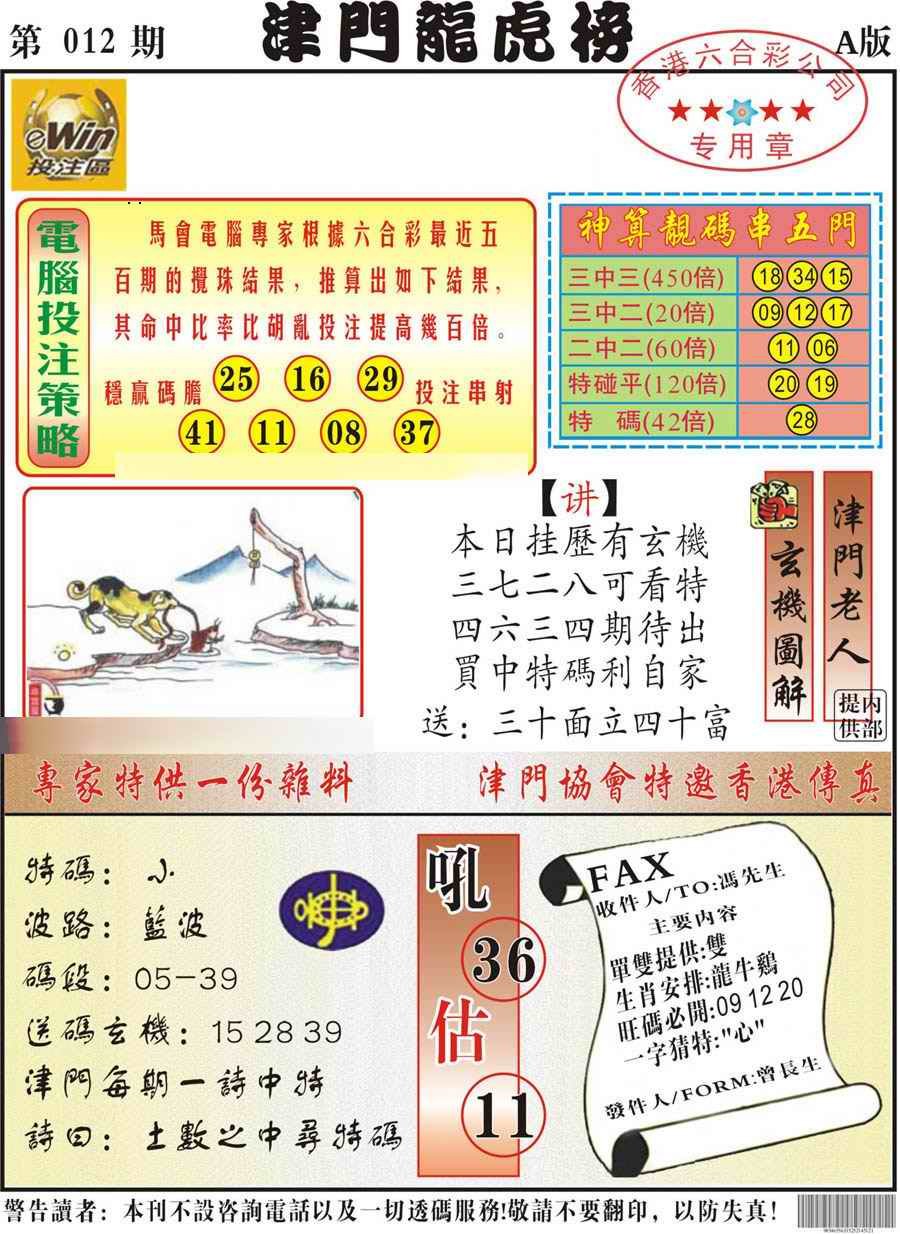 第 012 期
津門龍虎榜
A版
香港六合彩公司
专用章
eWin
投注區
電腦投注策略
馬會電腦專家根據六合彩最近五
百期的攪珠結果，推算出如下結果，
其命中比率比胡亂投注提高幾百倍。
穩贏碼膽 25 16 29 投注串射
41 11 08 37
神算靚碼串五門
三中三(450倍) 18 34 15
三中二(20倍) 09 12 17
二中二(60倍) 11 06
特碰平(120倍) 20 19
特 碼(42倍) 28
【讲】
本日挂歷有玄機
三七二八可看特
四六三四期待出
買中特碼利自家
送：三十面立四十富
玄機圖解
津門老人
内部
提供
專家特供一份雜料
津門協會特邀香港傳真
特碼：小
波路：籃波
碼段：05-39
送碼玄機：15 28 39
津門每期一詩中特
詩曰：土數之中尋特碼
吼
36
估
11
FAX
收件人/TO:馮先生
主要内容
單雙提供:雙
生肖安排:龍牛鷄
旺碼必開:09 12 20
一字猜特:"心"
發件人/FORM:曾長生
警告讀者：本刊不設咨詢電話以及一切透碼服務!敬請不要翻印，以防失真！